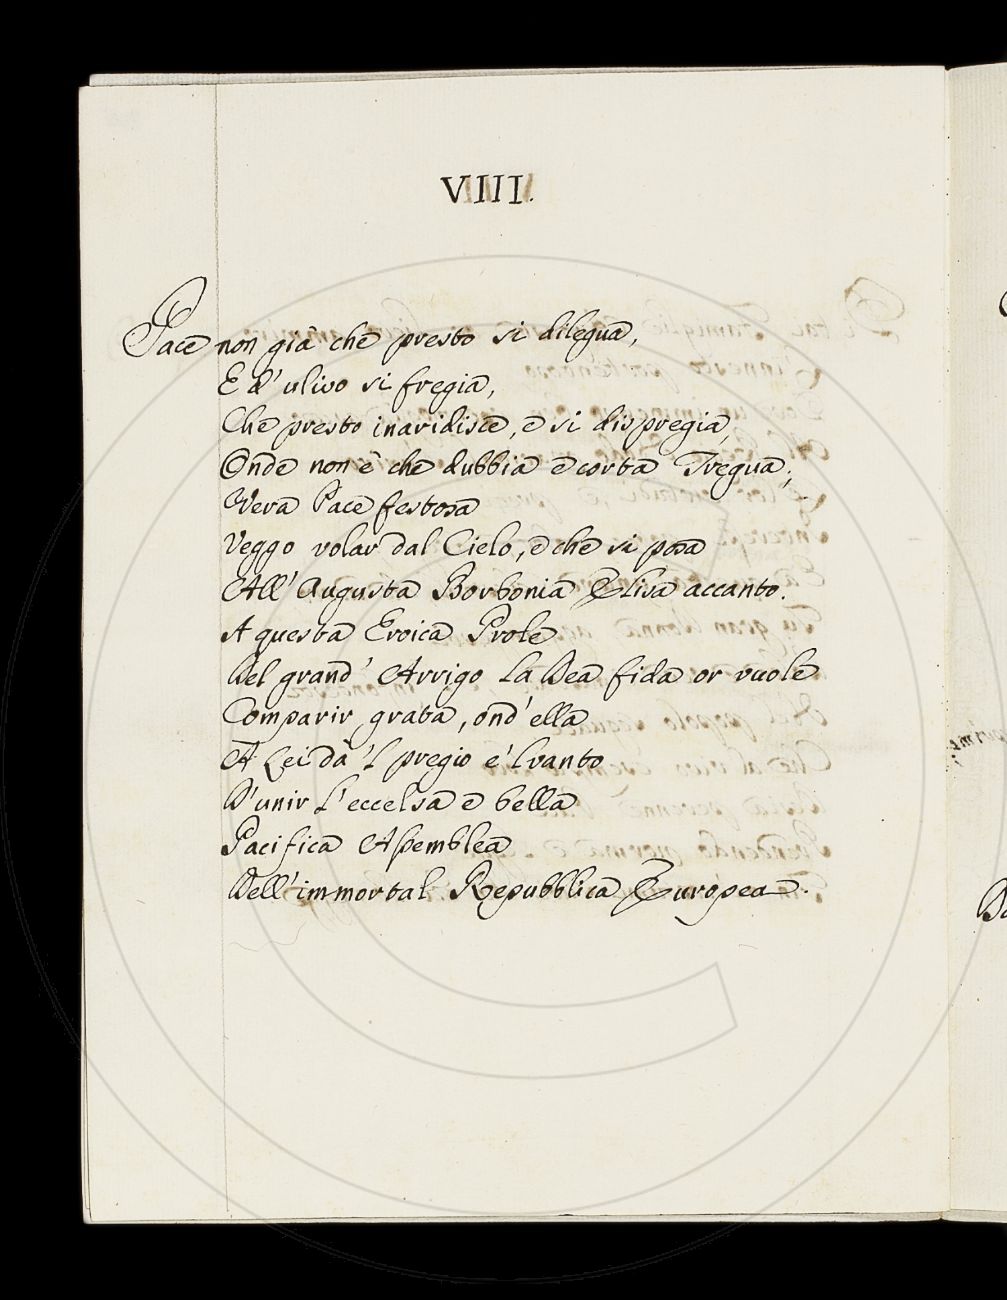 VIII.
Pace non già che presto si dilegua,
E d'ulivo si fregia,
Che presto inaridisce, e si dispregia,
Onde non è che dubbia e corta Tregua;
Vera Pace festosa
Veggo volar dal Cielo, e che si posa
All'Augusta Borbonia Elisa accanto.
A questa Eroica Prole
Del grand' Arrigo la Dea fida or vuole
Comparir grata, ond'ella
A Lei dà 'l pregio e'l vanto
D'unir l'eccelsa e bella
Pacifica Assemblea
Dell'immortal Repubblica Europea.